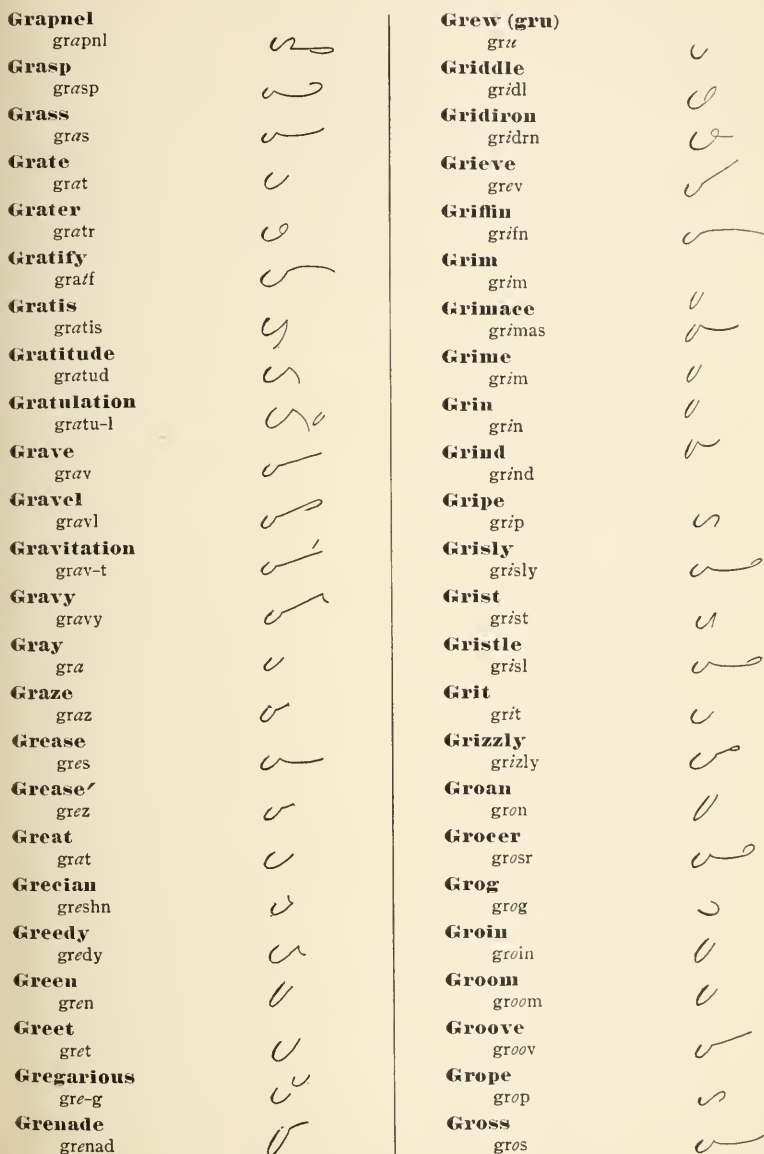 Grapnel
grapnl
Grasp
grasp
Grass
gras
Grate
grat
Grater
gratr
Gratify
gratf
Gratis
gratis
Gratitude
gratud
Gratulation
gratu-l
Grave
grav
Gravel
gravl
Gravitation
grav-t
Gravy
gravy
Gray
gra
Graze
graz
Grease
gres
Grease′
grez
Great
grat
Grecian
greshn
Greedy
gredy
Green
gren
Greet
gret
Gregarious
gre-g
Grenade
grenad
Grew (gru)
gru
Griddle
gridl
Gridiron
gridrn
Grieve
grev
Griffin
grifn
Grim
grim
Grimace
grimas
Grime
grim
Grin
grin
Grind
grind
Gripe
grip
Grisly
grisly
Grist
grist
Gristle
grisl
Grit
grit
Grizzly
grizly
Groan
gron
Grocer
grosr
Grog
grog
Groin
groin
Groom
groom
Groove
groov
Grope
grop
Gross
gros